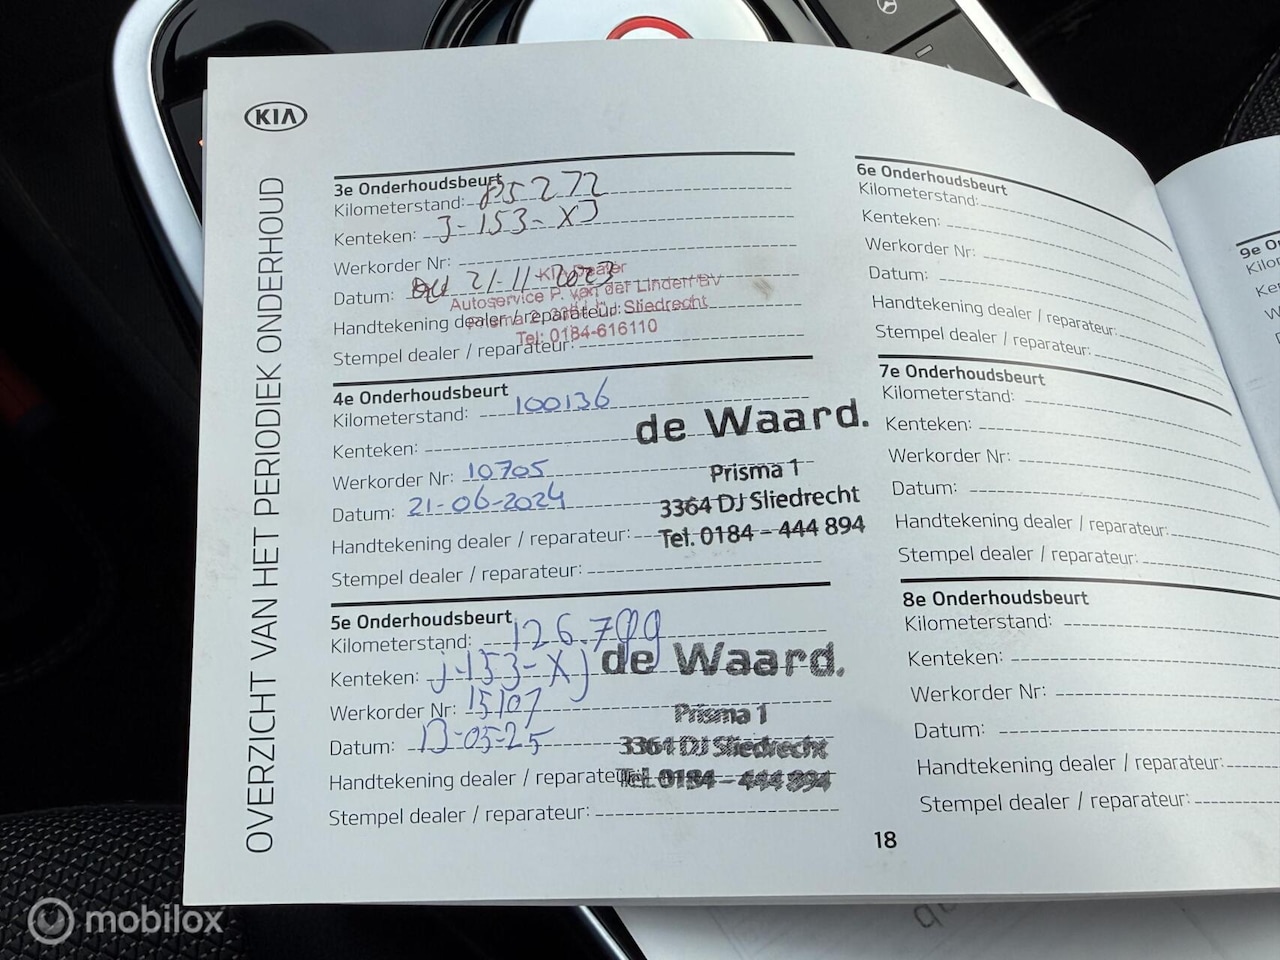 KIA
OVERZICHT VAN HET PERIODIEK ONDERHOUD
3e Onderhoudsbeurt
Kilometerstand: 85272
Kenteken: J-153-XJ
Werkorder Nr:
Datum: 21-11-2023
KIA Dealer
Autoservice P. van der Linden BV
Handtekening dealer / reparateur:
Sliedrecht
Tel: 0184-616110
Stempel dealer / reparateur:
4e Onderhoudsbeurt
Kilometerstand: 100136
Kenteken:
Werkorder Nr: 10705
Datum: 21-06-2024
Handtekening dealer / reparateur:
Stempel dealer / reparateur:
de Waard.
Prisma 1
3364 DJ Sliedrecht
Tel. 0184 - 444 894
5e Onderhoudsbeurt
Kilometerstand: 126.799
Kenteken: J-153-XJ
Werkorder Nr: 15107
Datum: 13-05-25
Handtekening dealer / reparateur:
Stempel dealer / reparateur:
de Waard.
Prisma 1
3364 DJ Sliedrecht
Tel. 0184 - 444 894
6e Onderhoudsbeurt
Kilometerstand:
Kenteken:
Werkorder Nr:
Datum:
Handtekening dealer / reparateur:
Stempel dealer / reparateur:
7e Onderhoudsbeurt
Kilometerstand:
Kenteken:
Werkorder Nr:
Datum:
Handtekening dealer / reparateur:
Stempel dealer / reparateur:
8e Onderhoudsbeurt
Kilometerstand:
Kenteken:
Werkorder Nr:
Datum:
Handtekening dealer / reparateur:
Stempel dealer / reparateur:
18
9e O
Kilo
Ke
W
mobilox